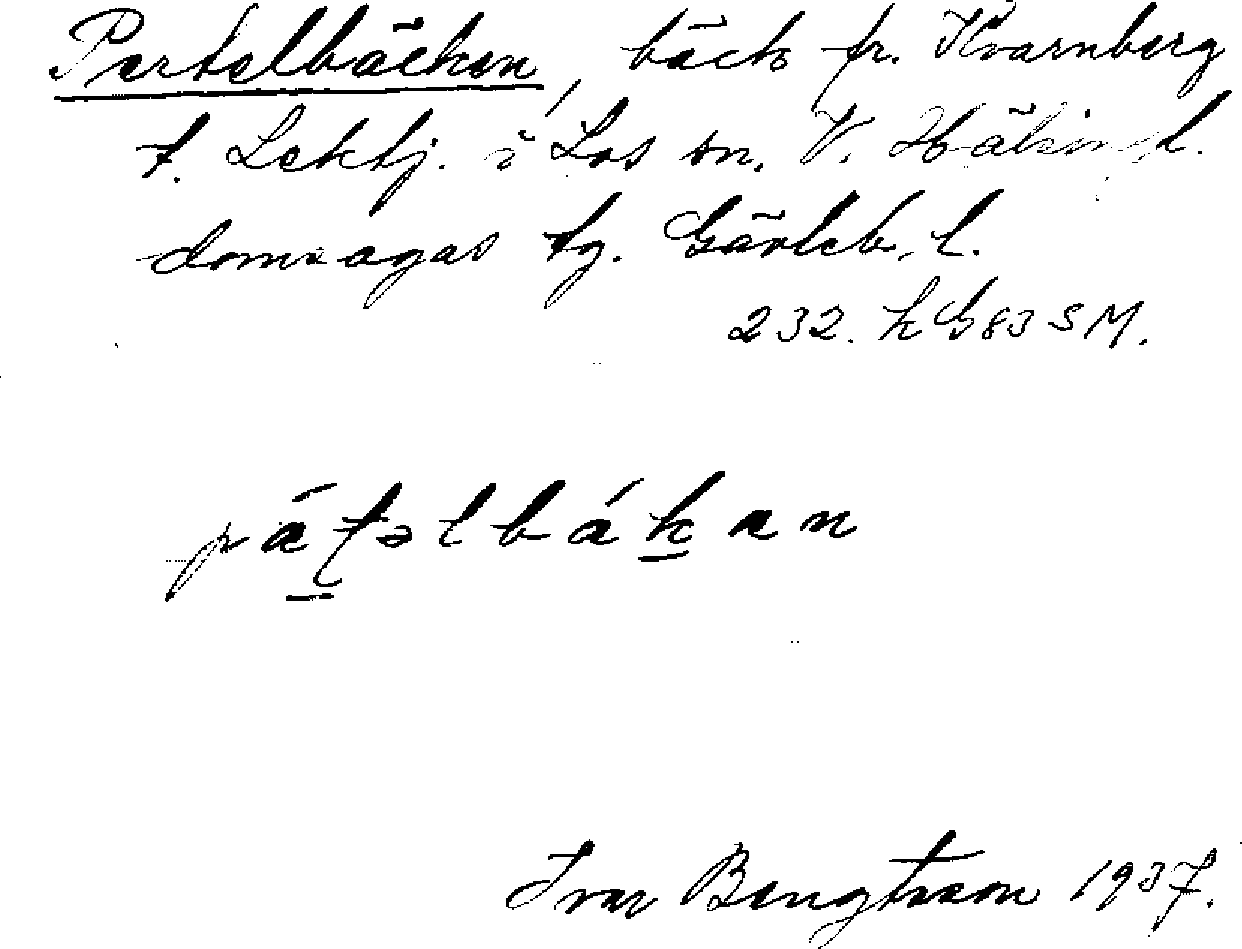 Pertelbäcken, bäck fr. Kvarnberg
t. Lektj. i Los sn. V. Hälsingl.
domsagas tg. Gävleb. l.
232. h G 83 S M.
Ivar Bengtsson 1937.